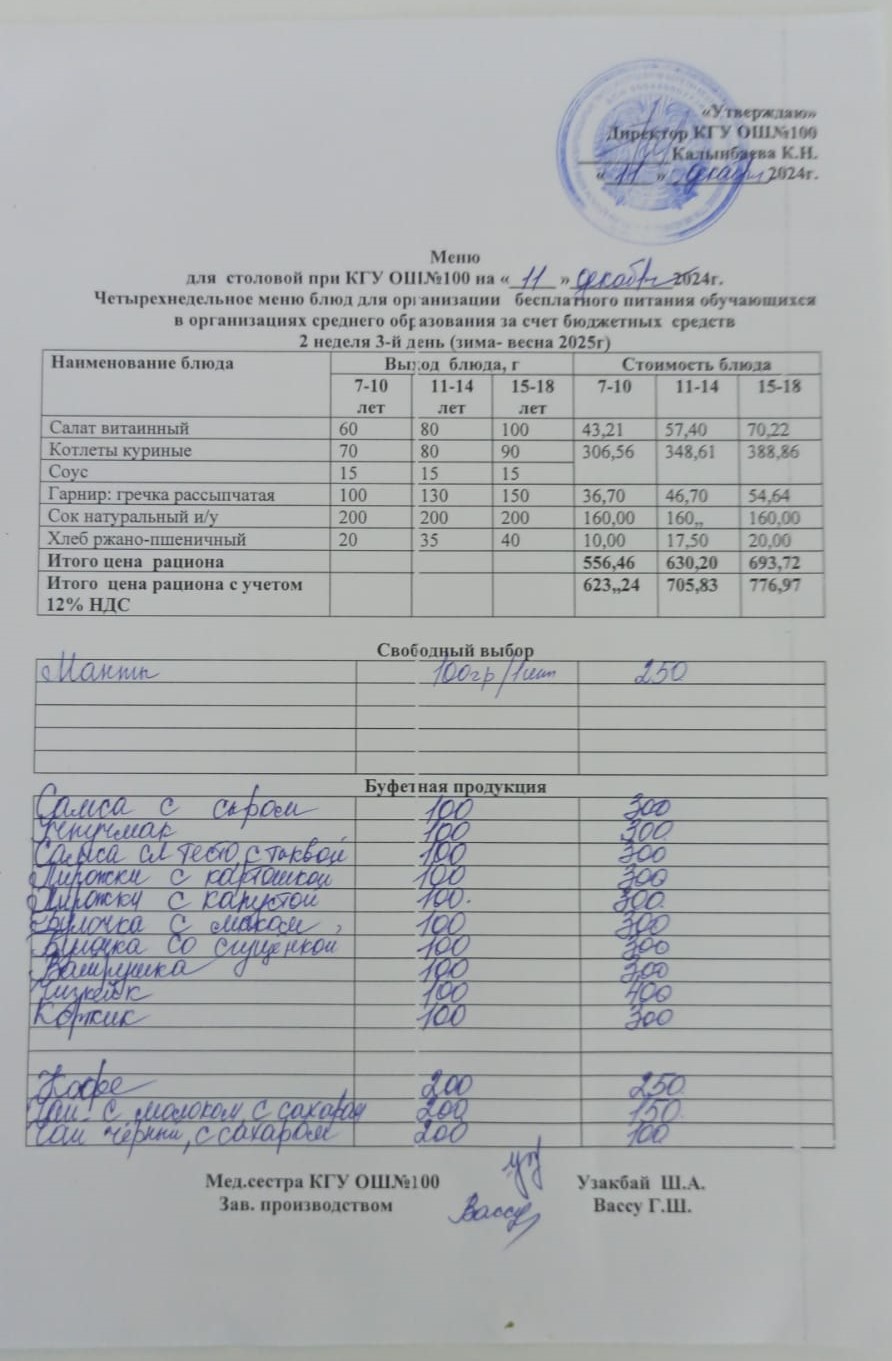 «Утверждаю»
Директор КГУ ОШ№100
__________ Калынбаева К.Н.
«_11_» _декабря_ 2024г.
Меню
для столовой при КГУ ОШ№100 на «_11_» _декабря_ 2024г.
Четырехнедельное меню блюд для организации бесплатного питания обучающихся
в организациях среднего образования за счет бюджетных средств
2 неделя 3-й день (зима- весна 2025г)
Наименование блюда Выход блюда, г Стоимость блюда
7-10 лет 11-14 лет 15-18 лет 7-10 11-14 15-18
Салат витаинный 60 80 100 43,21 57,40 70,22
Котлеты куриные 70 80 90 306,56 348,61 388,86
Соус 15 15 15
Гарнир: гречка рассыпчатая 100 130 150 36,70 46,70 54,64
Сок натуральный и/у 200 200 200 160,00 160,, 160,00
Хлеб ржано-пшеничный 20 35 40 10,00 17,50 20,00
Итого цена рациона 556,46 630,20 693,72
Итого цена рациона с учетом 623,,24 705,83 776,97
12% НДС
Свободный выбор
Манты 100гр/1шт 250
Буфетная продукция
Самса с сыром 100 300
Учпучмак 100 300
Самса сл тесто с тыквой 100 300
Пирожки с картошкой 100 300
Пирожки с капустой 100. 300
Булочка с маком, 100 300
Булочка со сгущенкой 100 300
Ватрушка 100 300
Чизкейк 100 400
Коржик 100 300
Кофе 200 250
Чай с молоком, с сахаром 200 150
Чай черный, с сахаром 200 100
Мед.сестра КГУ ОШ№100 Узакбай Ш.А.
Зав. производством Вассу Вассу Г.Ш.